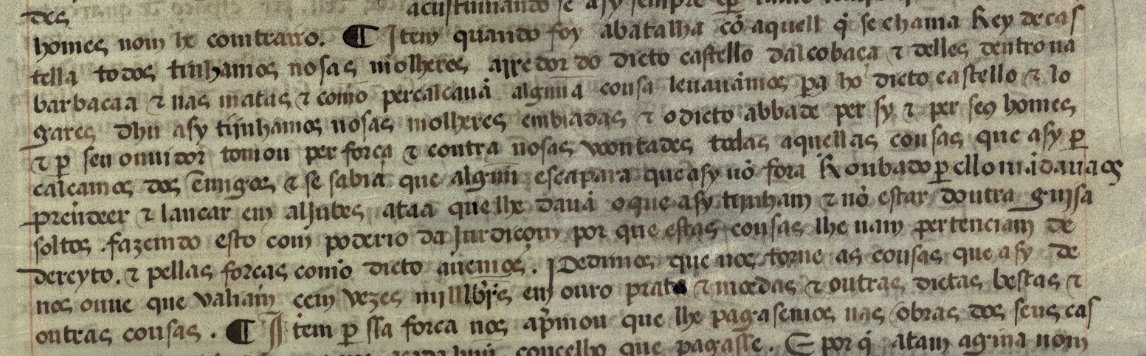 des acustumando se asy sempre
homẽes nom he comtrairo. ¶ Item quando foy abatalha cõ aquell q̃ se chama Rey de cas
tella todos tinhamos nosas molheres arredor do dicto castello dalcobaça ⁊ delles dentro na
barbacãa ⁊ nas matas ⁊ como percalcauã algũua cousa leuauãmos pa ho dicto castello ⁊ lo
gares dhu asy tijnhamos nosas molheres embiadas ⁊ o dicto abbade per sy ⁊ per seos homẽes
⁊ p̱ seu ouuidor tomou per força ⁊ contra nosas voontades todas aquellas cousas que asy p̱
calçamos dos ẽmigos ⁊ se sabia que alguũ escapara que asy nõ fora Roubado p̱ ello mãdaua os
prender ⁊ lançar em aljubes ataa que lhe dauã o que asy tijnham ⁊ nõ estar doutra guissa
soltos fazemdo esto com poderio da Jurdiçom por que estas cousas lhe nam pertençiam de
dereyto. ⁊ pellas forças como dicto auemos. pedimos que nos torne as cousas que asy de
nos ouue que valiam cem vezes mill lbr̃s em ouro prata ⁊ moedas ⁊ outras dictas bestas ⁊
outras cousas. ¶ Item p̱ ssa força nos ap̃mou que lhe pagasemos nas obras dos seus cas
concelho que pagasse. E por q̃ atam agina nom